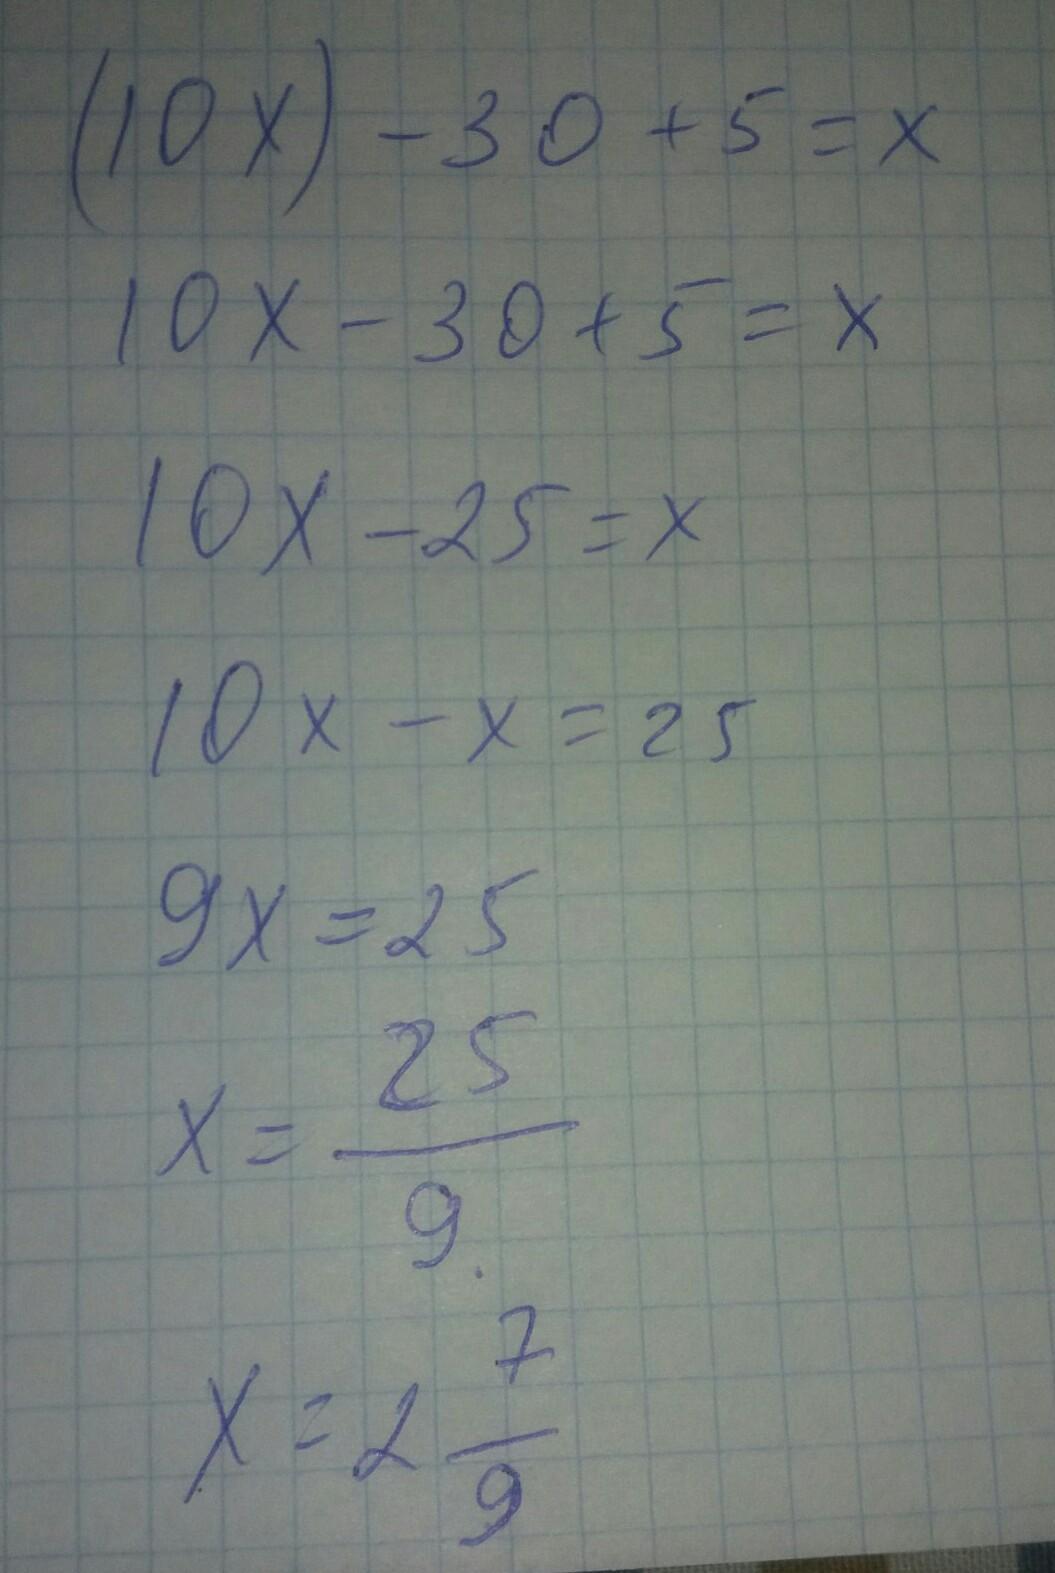 (10x) - 30 + 5 = x
10x - 30 + 5 = x
10x - 25 = x
10x - x = 25
9x = 25
x = 25/9
x = 2 7/9